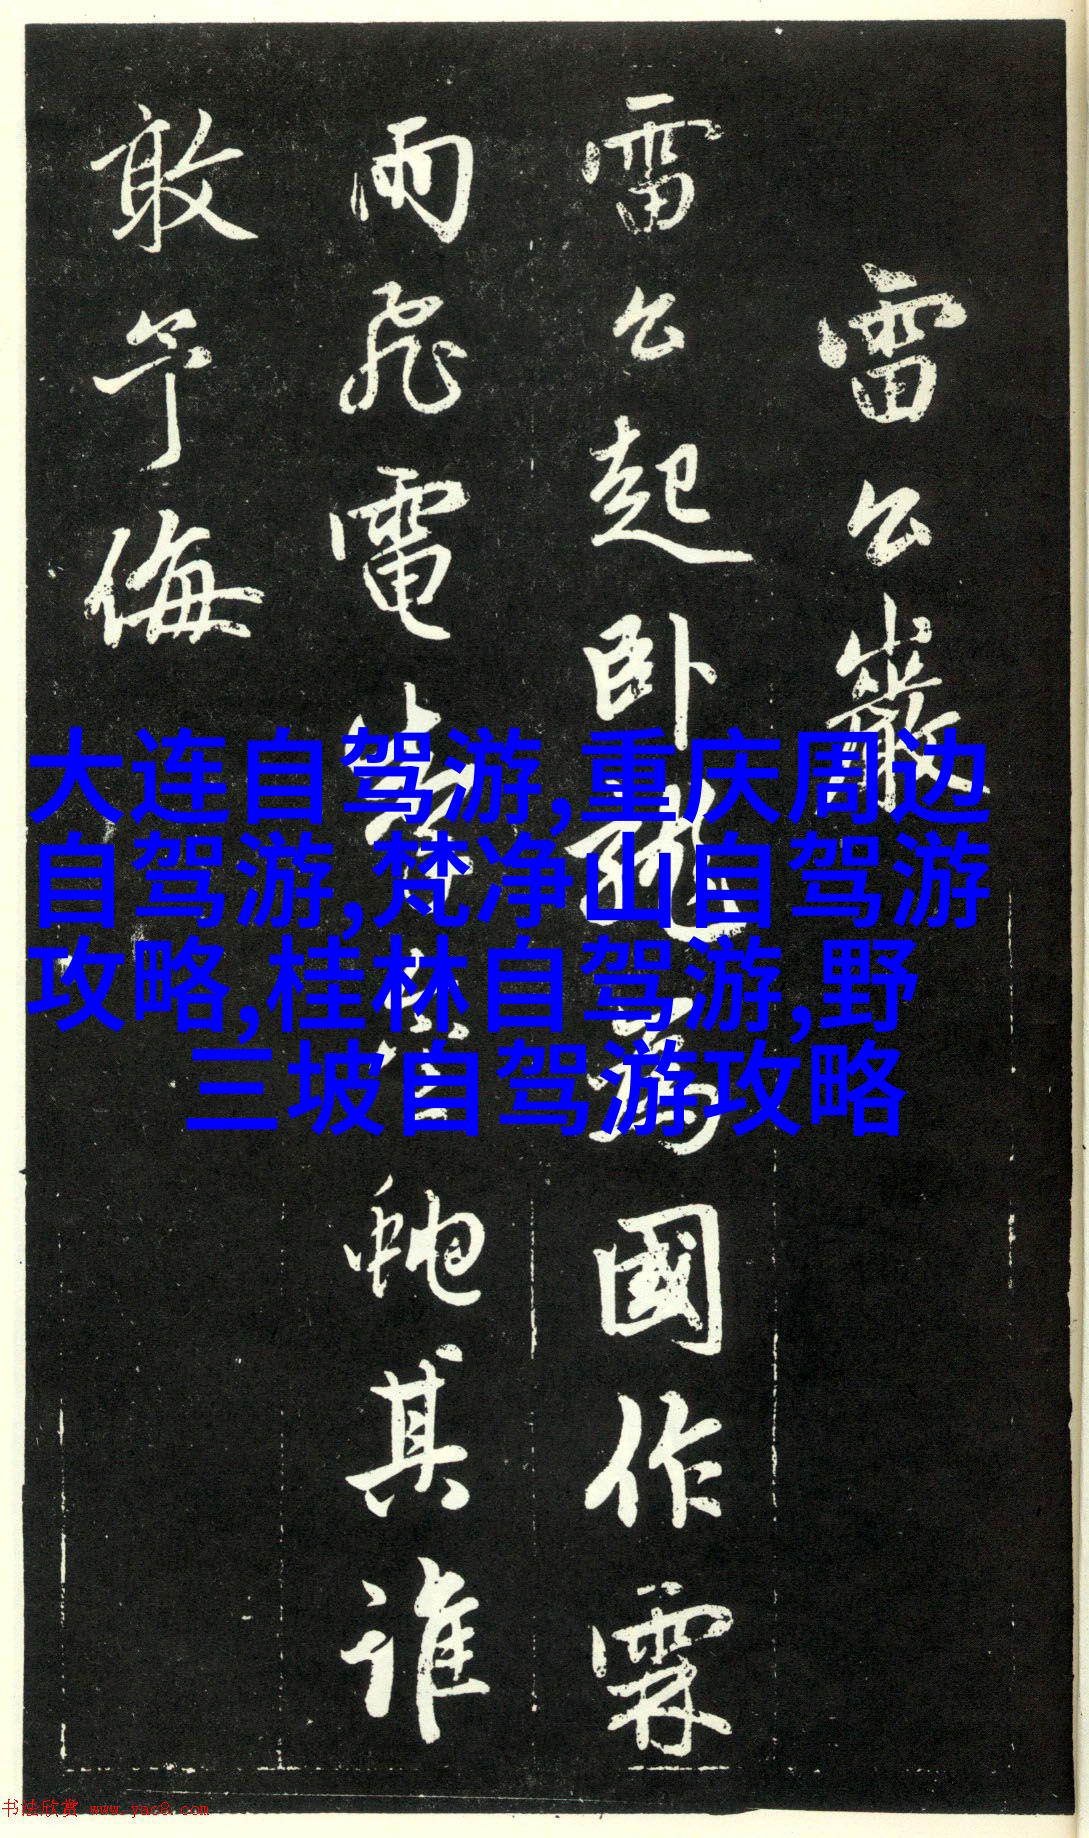 雷公巖
雷公起卧龍為國作霖
雨飛電蛇其誰
敢予侮
大连自驾游,重庆周边
自驾游,梵净山自驾游
攻略,桂林自驾游,野
三坡自驾游攻略
书法欣赏 www.yac8.com